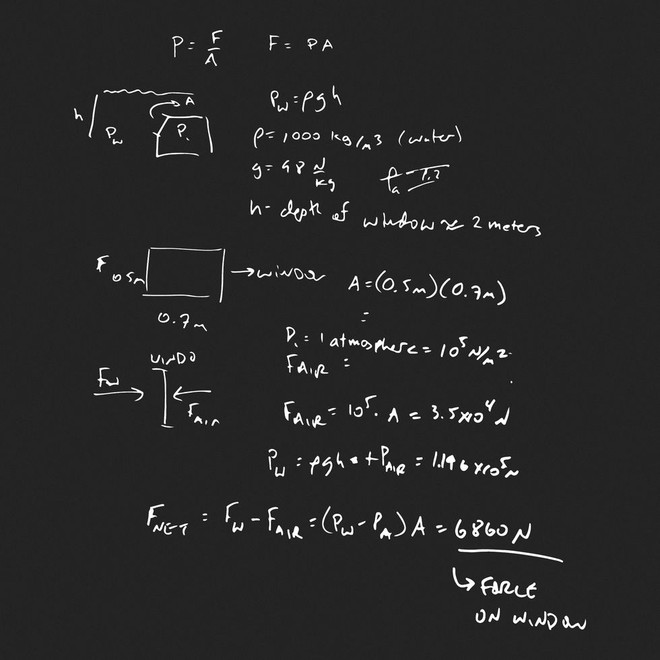 P = F/A F = PA
h P_w A P.
P_w = ρgh
ρ = 1000 kg/m3 (water)
g = 9.8 N/kg
h - depth of window ≈ 2 meters
F 0.5m → window A = (0.5m)(0.7m)
0.7m =
P. = 1 atmosphere = 10^5 N/m2.
F_AIR =
WINDO
F_w F_AIR
F_AIR = 10^5 · A = 3.5x10^4 N
P_w = ρgh + P_AIR = 1.196x10^5 N
F_NET = F_w - F_AIR = (P_w - P_A) A = 6860 N
↳ FORCE
ON WINDOW